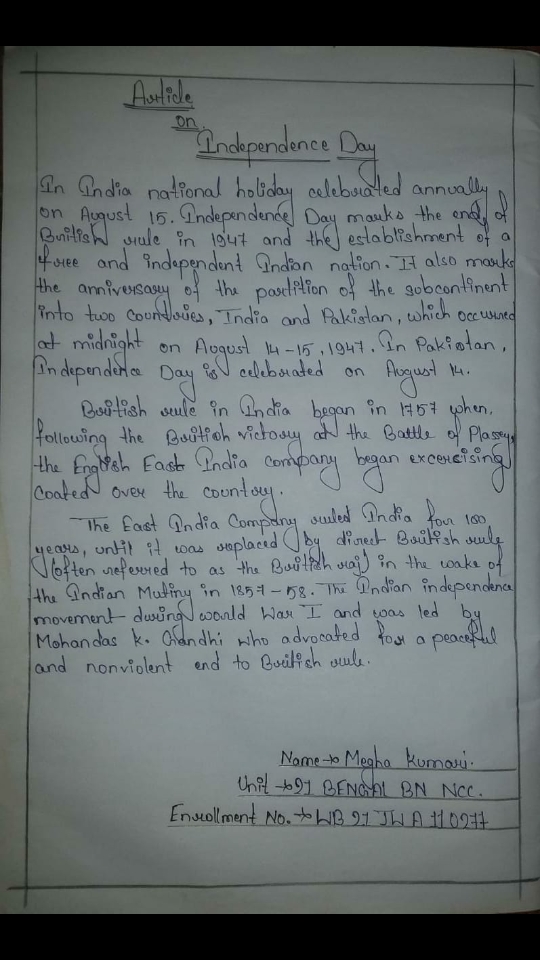 Article
on
Independence Day
In India national holiday celebrated annually
on August 15. Independence Day marks the end of
British rule in 1947 and the establishment of a
free and independent Indian nation. It also marks
the anniversary of the partition of the subcontinent
into two countries, India and Pakistan, which occurred
at midnight on August 14-15, 1947. In Pakistan,
Independence Day is celebrated on August 14.
British rule in India began in 1757 when,
following the British victory at the Battle of Plassey,
the English East India company began excercising
coated over the country.
The East India Company ruled India for 100
years, until it was replaced by direct British rule
(often referred to as the British raj) in the wake of
the Indian Mutiny in 1857-58. The Indian independence
movement during world War I and was led by
Mohandas K. Gandhi who advocated for a peaceful
and nonviolent end to British rule.
Name→ Megha Kumari.
Unit → 21 BENGAL BN NCC.
Enrollment No. → WB 21 JW A 110277